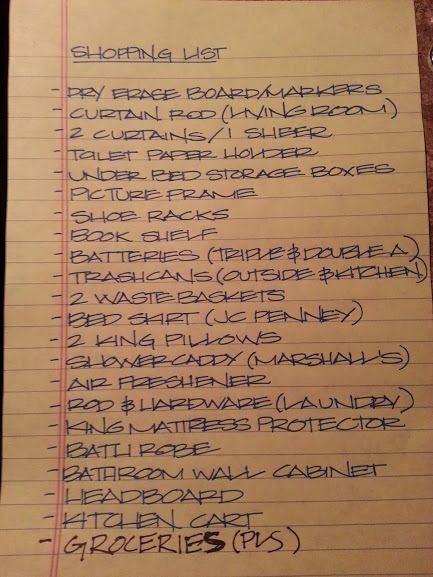 SHOPPING LIST
- DRY ERASE BOARD/MARKERS
- CURTAIN ROD (LIVING ROOM)
- 2 CURTAINS/1 SHEER
- TOILET PAPER HOLDER
- UNDER BED STORAGE BOXES
- PICTURE FRAME
- SHOE RACKS
- BOOK SHELF
- BATTERIES (TRIPLE & DOUBLE A)
- TRASHCANS (OUTSIDE & KITCHEN)
- 2 WASTE BASKETS
- BED SKIRT (JC PENNEY)
- 2 KING PILLOWS
- SHOWER CADDY (MARSHALL'S)
- AIR FRESHENER
- ROD & HARDWARE (LAUNDRY)
- KING MATTRESS PROTECTOR
- BATH ROBE
- BATHROOM WALL CABINET
- HEADBOARD
- KITCHEN CART
- GROCERIES (PLS)